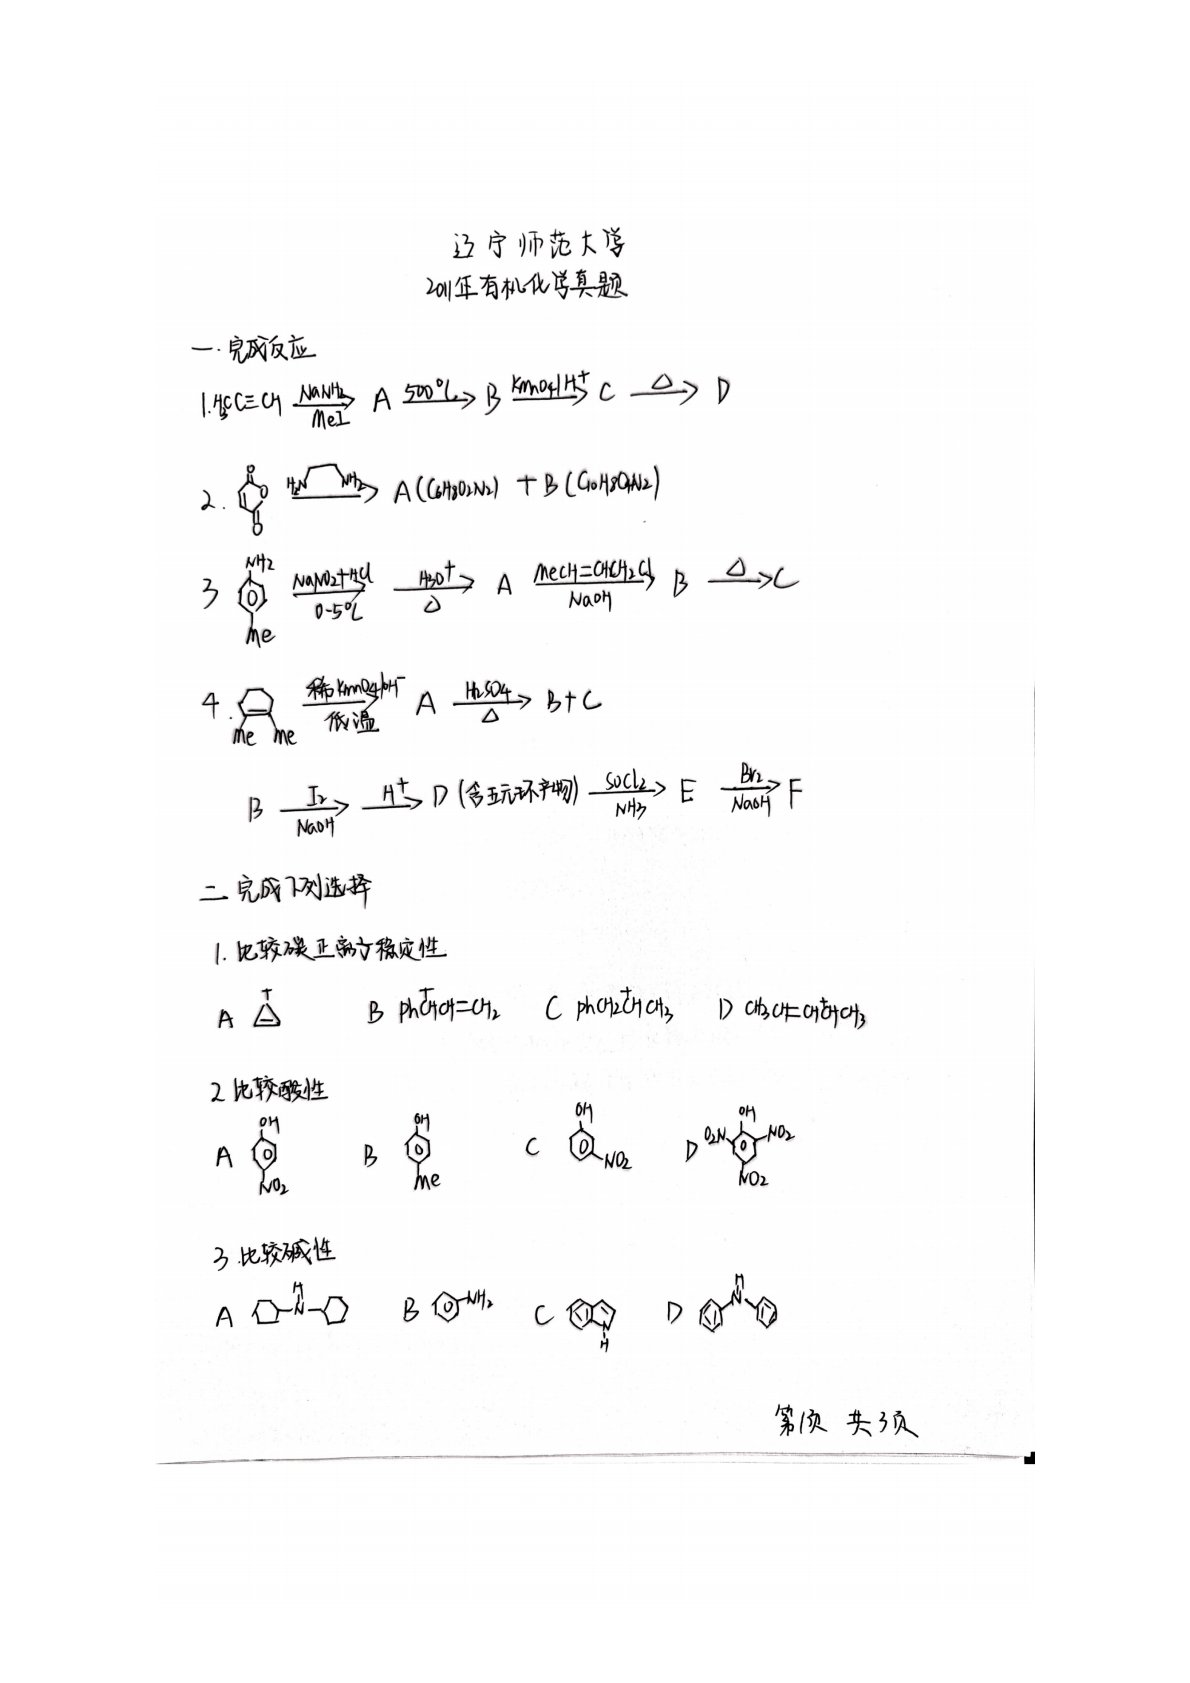 辽宁师范大学
2011年有机化学真题
一.完成反应
1.H3CC≡CH NaNH2 MeI A 500℃ B KmnO4/H+ C △ D
2. O O O H2N NH2 A(C6H8O2N2) + B(C10H8O4N2)
3 NH2 Me NaNO2+HCl 0-5℃ H3O+ △ A MeCH=CHCH2Cl NaOH B △ C
4. Me Me 稀KmnO4/OH- 低温 A H2SO4 △ B+C
B I2 NaOH H+ D(含五元环产物) SOCl2 NH3 E Br2 NaOH F
二 完成下列选择
1.比较碳正离子稳定性
A + B phC+HCH=CH2 C phCH2C+HCH3 D CH3CH=CHC+HCH3
2 比较酸性
A OH NO2 B OH Me C OH NO2 D OH O2N NO2 NO2
3.比较碱性
A H N B NH2 C N H D H N
第1页 共3页